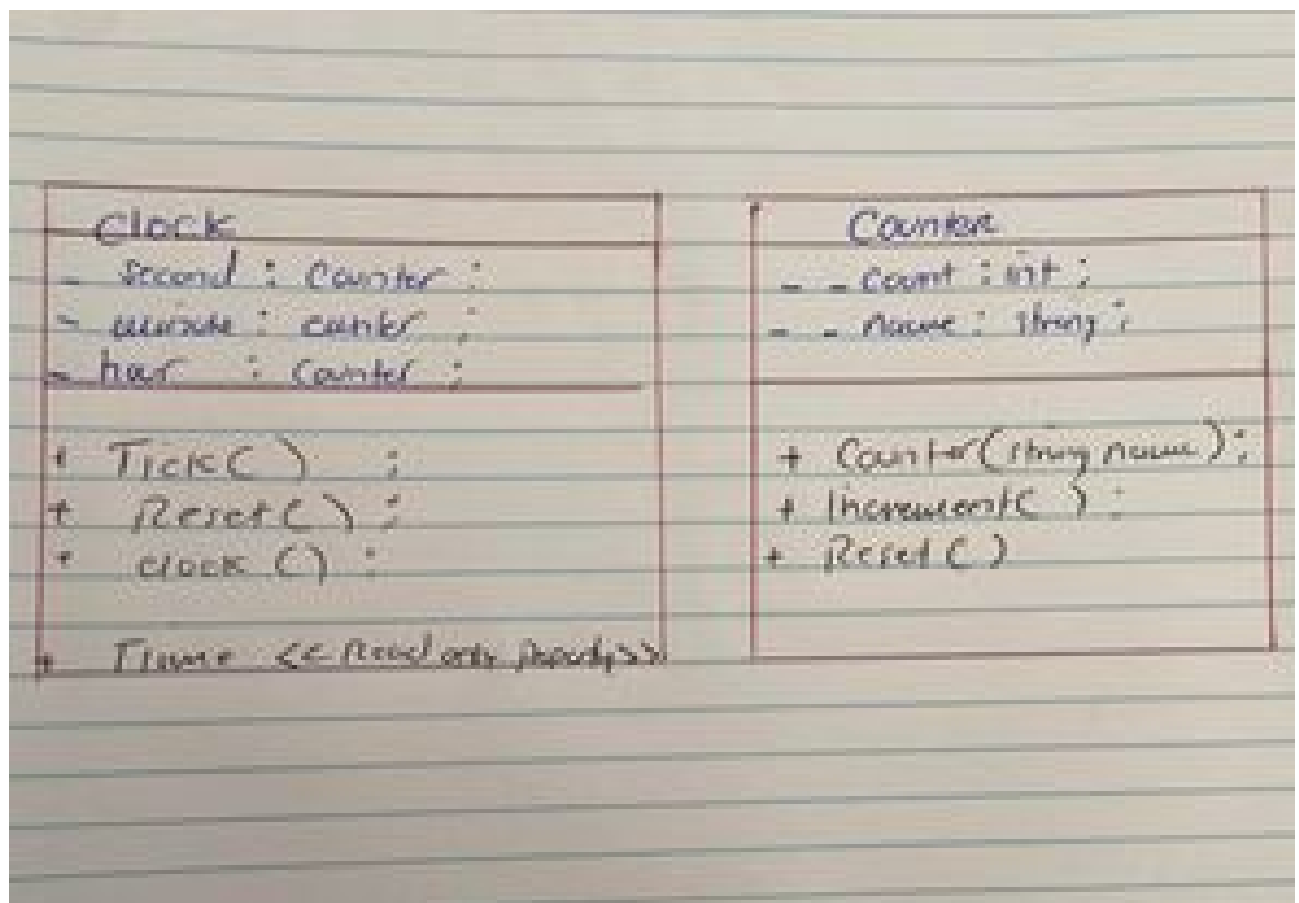 Clock
- second : Counter ;
- minute : counter ;
- hour : Counter ;
+ Tick( ) ;
+ Reset( ) ;
+ clock ( ) ;
+ Time << Read only property>>
Counter
- _ count : int ;
- _ name : string ;
+ Counter(string name) ;
+ Increment( ) ;
+ Reset( )